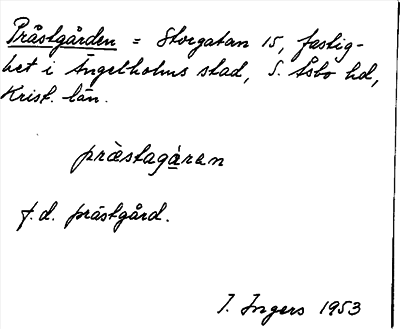 Prästgården = Storgatan 15, fastig-
het i Ängelholms stad, S. Åsbo hd,
Krist. län.
præstagáren
f.d. prästgård.
I. Ingers 1953